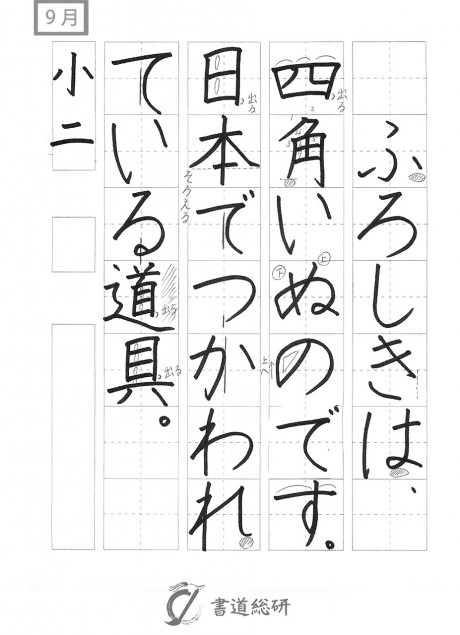 9月
ふろしきは、
四角いぬのです。
出る
上
下
上へ
日本でつかわれ
出る
そろえる
ている道具。
出る
出る
小二
書道総研